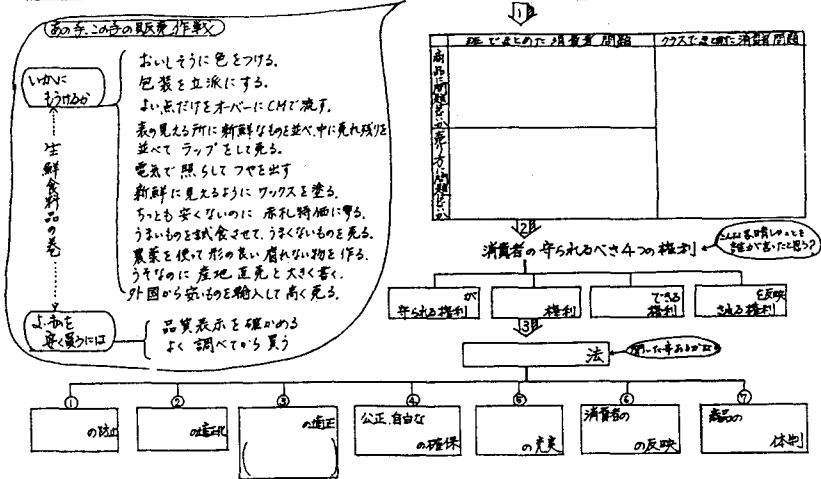 あの手、この手の販売作戦
いかに
もうけるか
生鮮食料品の巻
よい品を
安く買うには
おいしそうに色をつける。
包装を立派にする。
よい点だけをオーバーにCMで流す。
表の見える所に新鮮なものを並べ、中に売れ残りを
並べてラップをして売る。
電気で照らしてつやを出す
新鮮に見えるようにワックスを塗る。
ちっとも安くないのに赤札特価にする。
うまいものを試食させて、うまくないものを売る。
農薬を使って形の良い腐れない物を作る。
うそなのに産地直売と大きく書く。
外国から安いものを輸入して高く売る。
品質表示を確かめる
よく調べてから買う
1
班でまとめた消費者問題
クラスでまとめた消費者問題
商品に問題はないか
売り方に問題はないか
2
消費者の守られるべき4つの権利
こんな素晴しいことを
誰が言ったと思う?
が
守られる権利
権利
できる
権利
を反映
される権利
3
法
聞いた事あるかな
①
の防止
②
の適正化
③
の適正
( )
④
公正、自由な
の確保
⑤
の充実
⑥
消費者の
の反映
⑦
商品の
体制